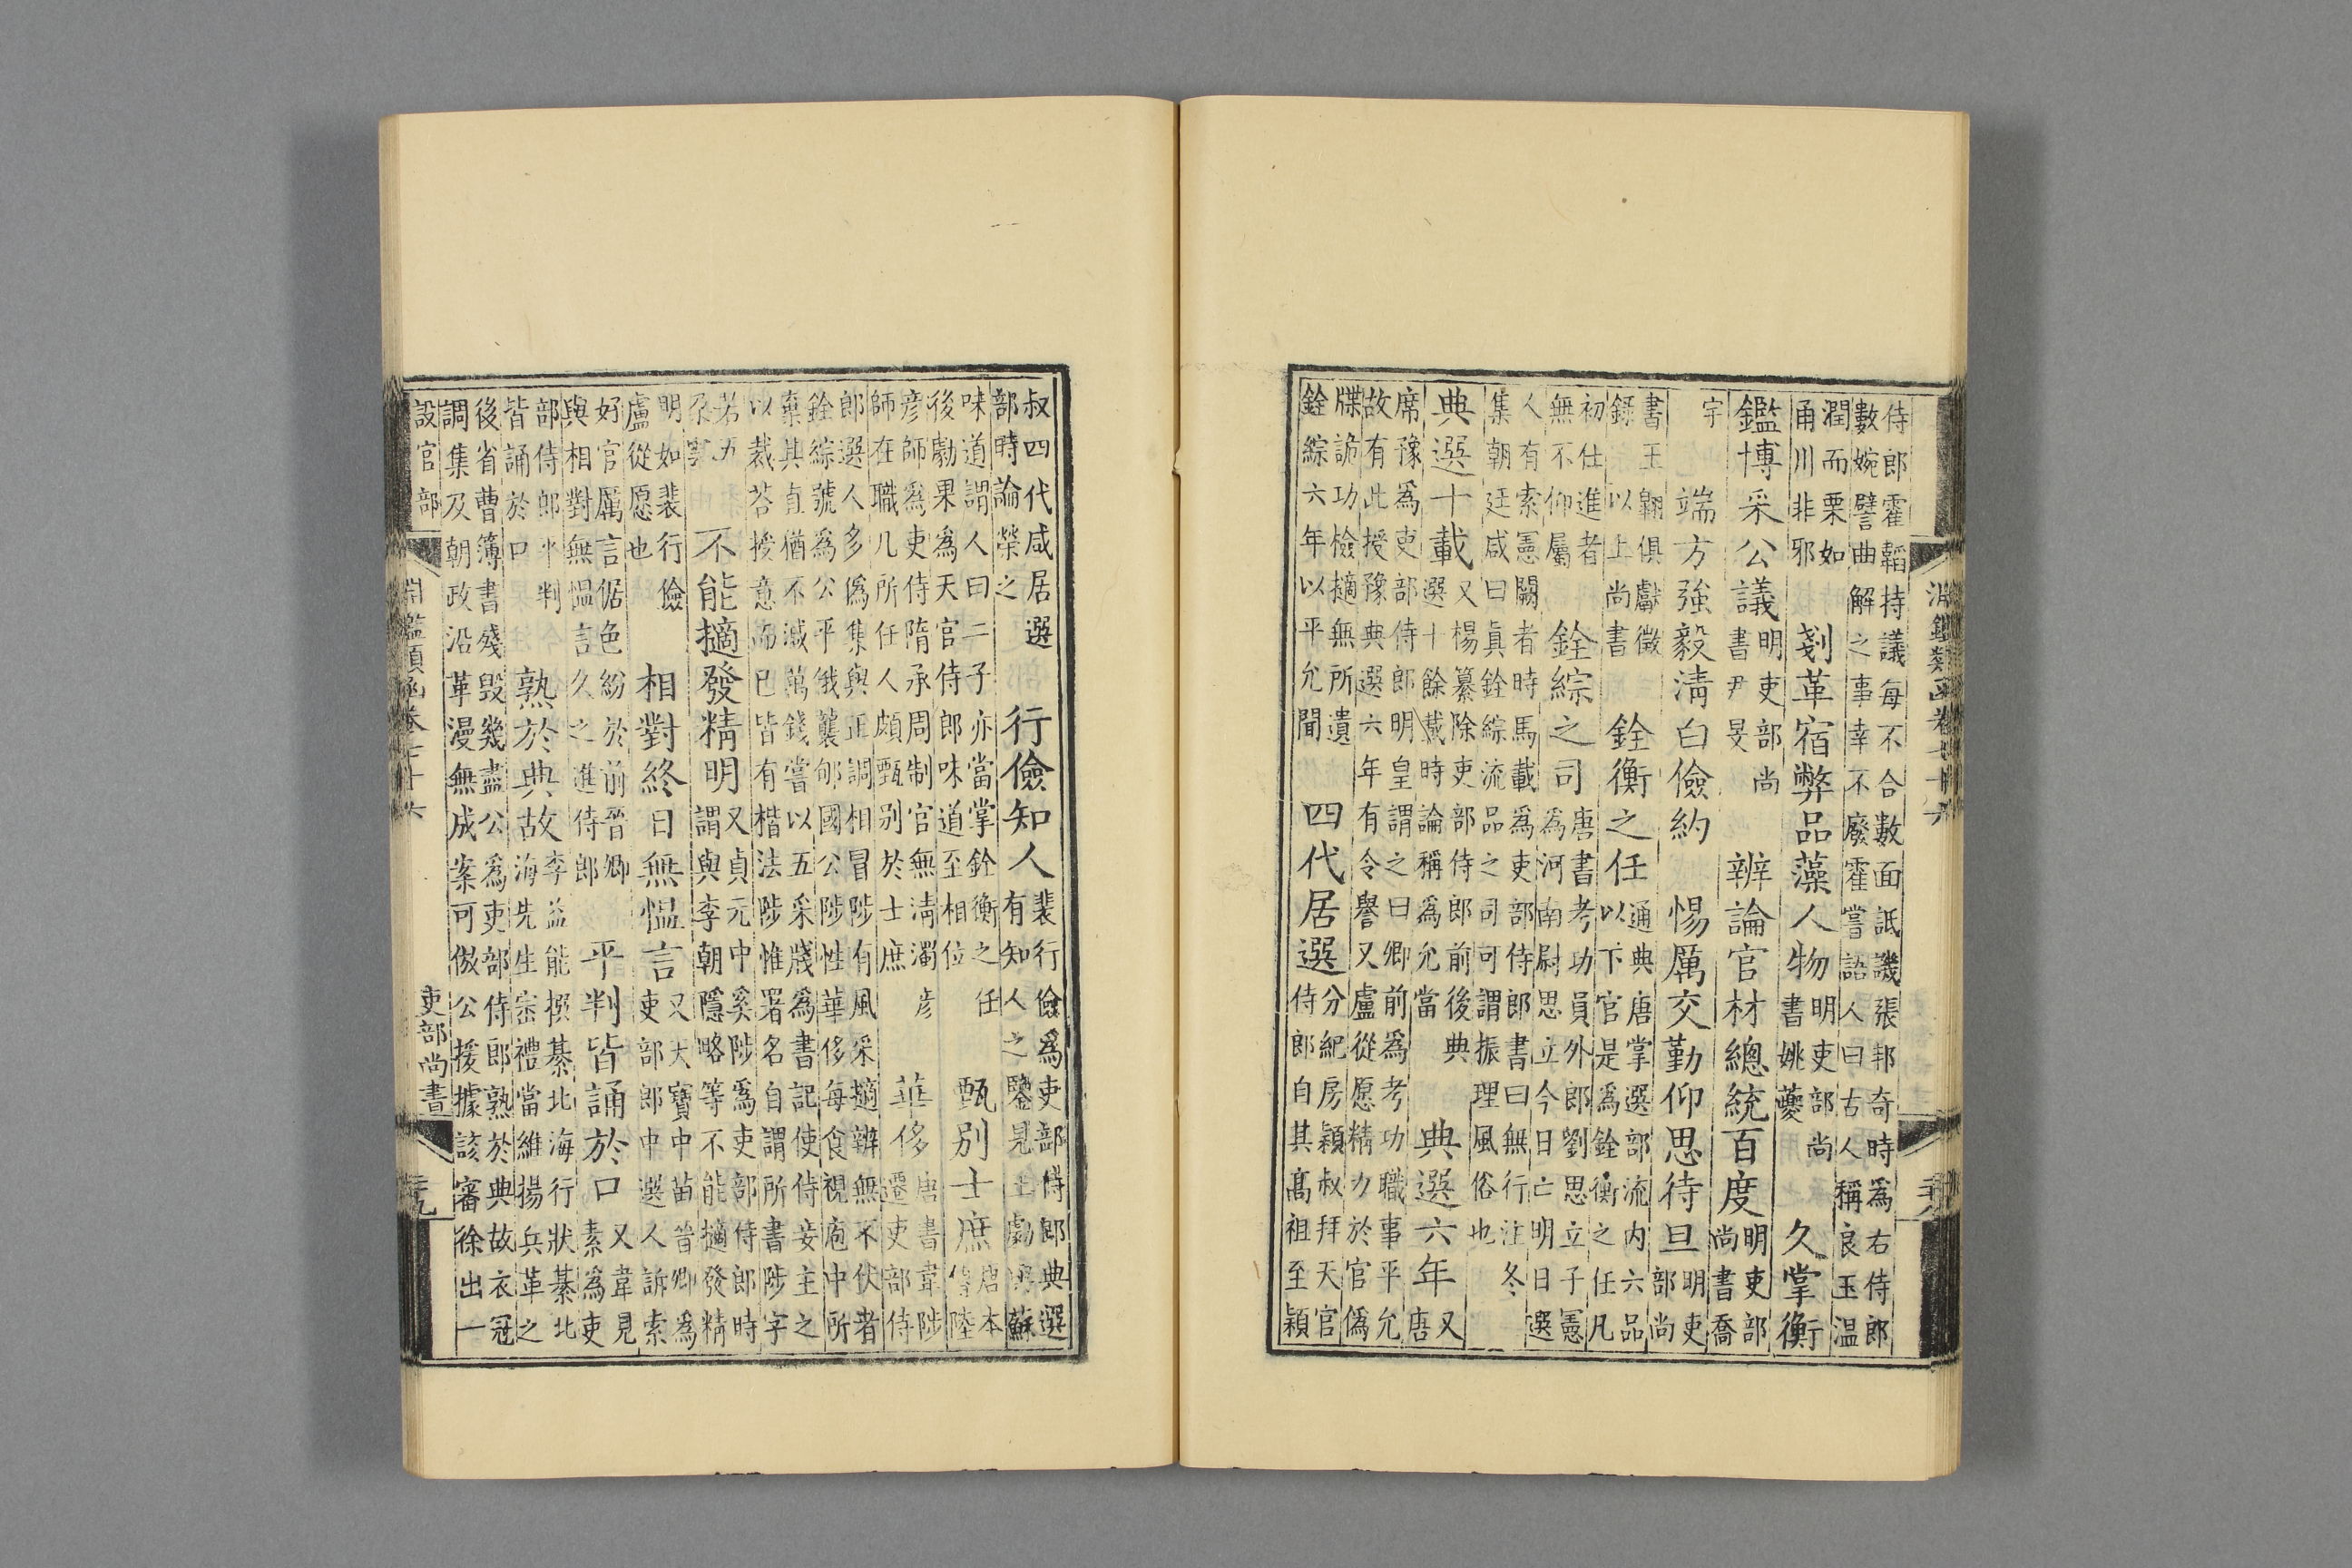 淵鑑類函卷七十六
侍郎霍韜持議每不合數面詆譏張邦奇時為右侍郎
數婉譬曲解之事幸不廢霍嘗語人曰古人稱良玉溫
潤而栗如
甬川非邪
剗革宿弊品藻人物
明吏部尚
書姚夔
久掌衡
鑑博采公議
明吏部尚
書尹旻
辨論官材總統百度
明吏部
尚書喬
宇
端方強毅清白儉約 惕厲交勤仰思待旦
明吏
部尚
書王翺俱獻徵
錄以上尚書
銓衡之任
通典唐掌選部流內六品
以下官是為銓衡之任凡
初仕進者
無不仰屬
銓綜之司
唐書考功員外郎劉思立子憲
為河南尉思立今日亡明日選
人有索憲闕者時馬載為吏部侍郎書曰無行注冬
集朝廷咸曰真銓綜流品之司可謂振理風俗也
典選十載
又楊纂除吏部侍郎前後典
選十餘載時論稱為允當
典選六年
又
唐
席豫為吏部侍郎明皇謂之曰卿前為考功職事平允
故有此授豫典選六年有令譽又盧從愿精力於官偽
牒詭功檢擿無所遺
銓綜六年以平允聞
四代居選
分紀房穎叔拜天官
侍郎自其高祖至穎
叔四代咸居選
部時論榮之
行儉知人
裴行儉為吏部侍郎典選
有知人之鑒見王勮 蘇
味道謂人曰二子亦當掌銓衡之任
後勮果為天官侍郎味道至相位
甄別士庶
唐本
傳陸
彥師為吏侍隋承周制官無清濁彥
師在職凡所任人頗甄別於士庶
華侈
唐書韋陟
遷吏部侍
郎選人多偽集與正調相冒陟有風采擿辨無不伏者
銓綜號為公平俄襲郇國公陟性華侈每食視庖中所
棄其直猶不減萬錢嘗以五采牋為書記使侍妾主之
以裁荅授意而已皆有楷法陟惟署名自謂所書陟字
若五
朵雲
不能擿發精明
又貞元中奚陟為吏部侍郎時
謂與李朝隱略等不能擿發精
明如裴行儉
盧從愿也
相對終日無慍言
又大寶中苗晉卿為
吏部郎中選人訴索
好官厲言倨色紛於前晉卿
與相對無慍言久之進侍郎
平判皆誦於口
又韋見
素為吏
部侍郎平判
皆誦於口
熟於典故
李益能撰綦北海行狀綦北
海先生密禮當維揚兵革之
後省曹簿書殘毀幾盡公為吏部侍郎熟於典故衣冠
調集及朝政沿革漫無成案可倣公援據該審徐出一
設官部 淵鑑類函卷七十六 吏部尚書